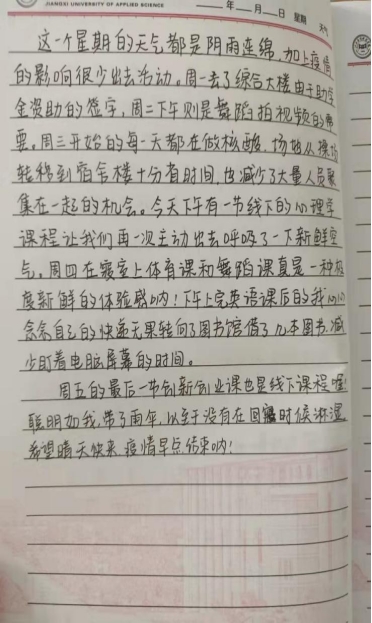 JIANGXI UNIVERSITY OF APPLIED SCIENCE
年 月 日 星期 天气
这一个星期的天气都是阴雨连绵,加上疫情
的影响很少出去活动。周一去了综合大楼由于助学
金资助的签字,周二下午则是舞蹈拍视频的需
要。周三开始的每一天都在做核酸,场地从操场
转移到宿舍楼十分省时间,也减少了大量人员聚
集在一起的机会。今天下午有一节线下的心理学
课程让我们再一次主动出去呼吸了一下新鲜空
气。周四在寝室上体育课和舞蹈课真是一种极
度新鲜的体验感呐!下午上完英语课后的我心心
念念自己的快递无果转向了图书馆借了几本图书,减
少盯着电脑屏幕的时间。
周五的最后一节创新创业课也是线下课程喔
聪明如我,带了雨伞,以至于没有在回寝时候淋湿
希望晴天快来,疫情早点结束呐!